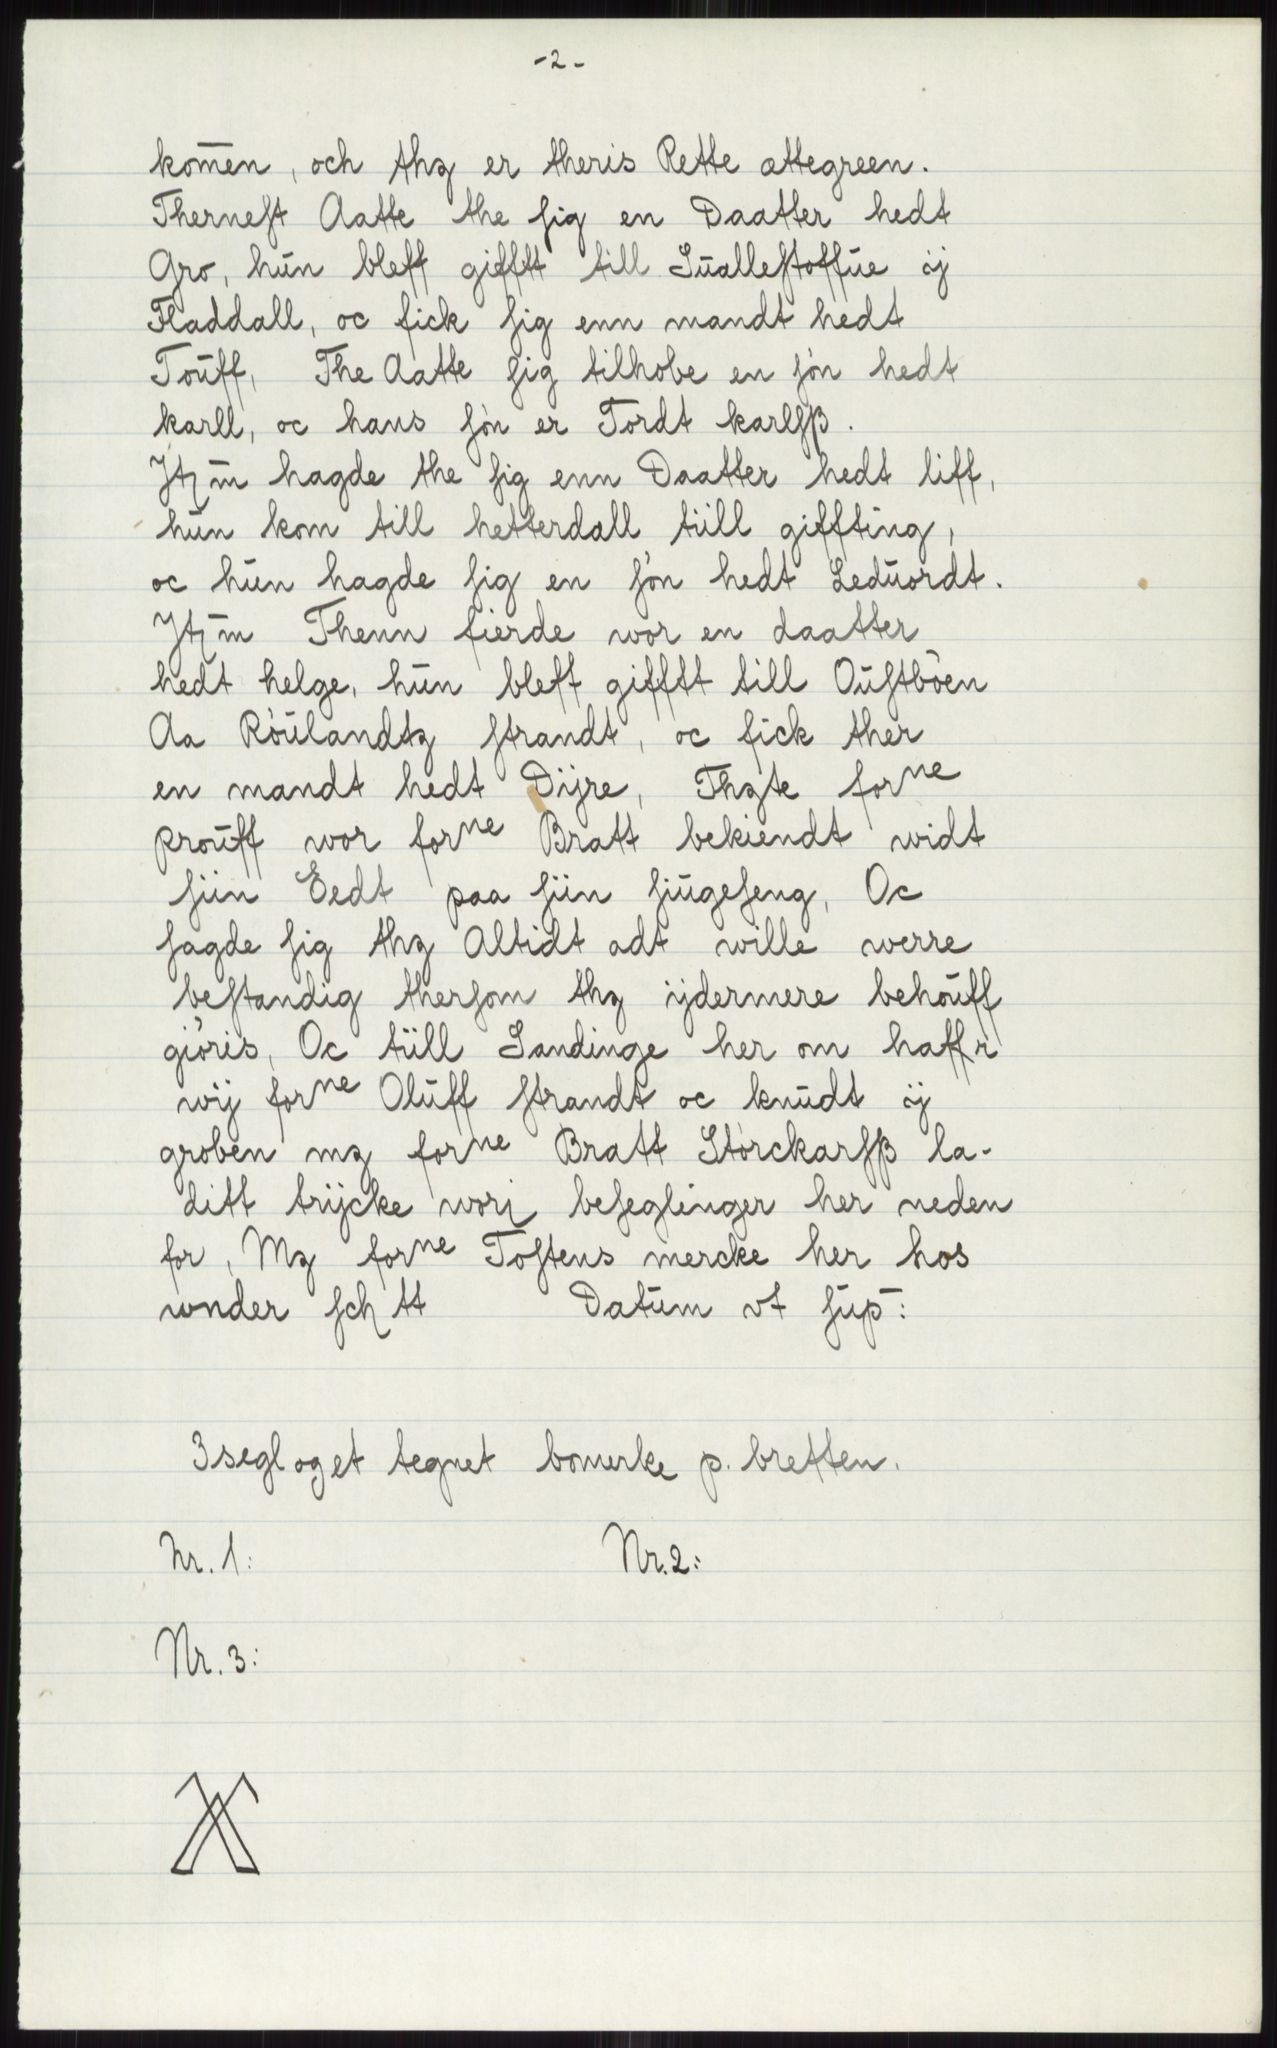 -2-
kom̅en, och thꝫ er theris Rette attegreen.
Therneſt Aatte the ſig en Daatter hedt
Gro, hūn bleff gifftt till Sūalleſtoffūe ij
Fladdall, oc fick ſig enn mandt hedt
Toūff, The Aatte ſig tilhobe en ſón hedt
karll, oc hans ſón er Tordt karlſß.
Jtꝫm̅ hagde the ſig enn Daatter hedt liff,
hūn kom till hetterdall tiill giffting,
oc hūn hagde ſig en ſón hedt Ledūordt.
Jtꝫm̅ Thenn fierde wor en daatter
hedt helge, hūn bleff gifftt till Oūſtbóen
Aa Róūlandtꝫ ſtrandt, oc fick ther
en mandt hedt Dijre, Thꝫte forne
proūff wor forne Bratt bekiendt widt
ſiin Eedt paa ſiin ſiūgeſeng, Oc
ſagde ſig thꝫ Altidt adt wille werre
beſtandig therſom thꝫ ijdermere behoūff
gióris, Oc tiill Sandinge her om haffr
wij forne Olūff ſtrandt oc knūdt ij
groben mꝫ forne Bratt Stórckarſß la-
ditt trijcke worj beſeglinger her neden
for, Mꝫ forne Toſtens mercke her hos
wnder ſch tt Datūm vt ſūp̅:
3 segl og et tegnet bomerke p. bretten.
Nr. 1: Nr. 2:
Nr. 3: